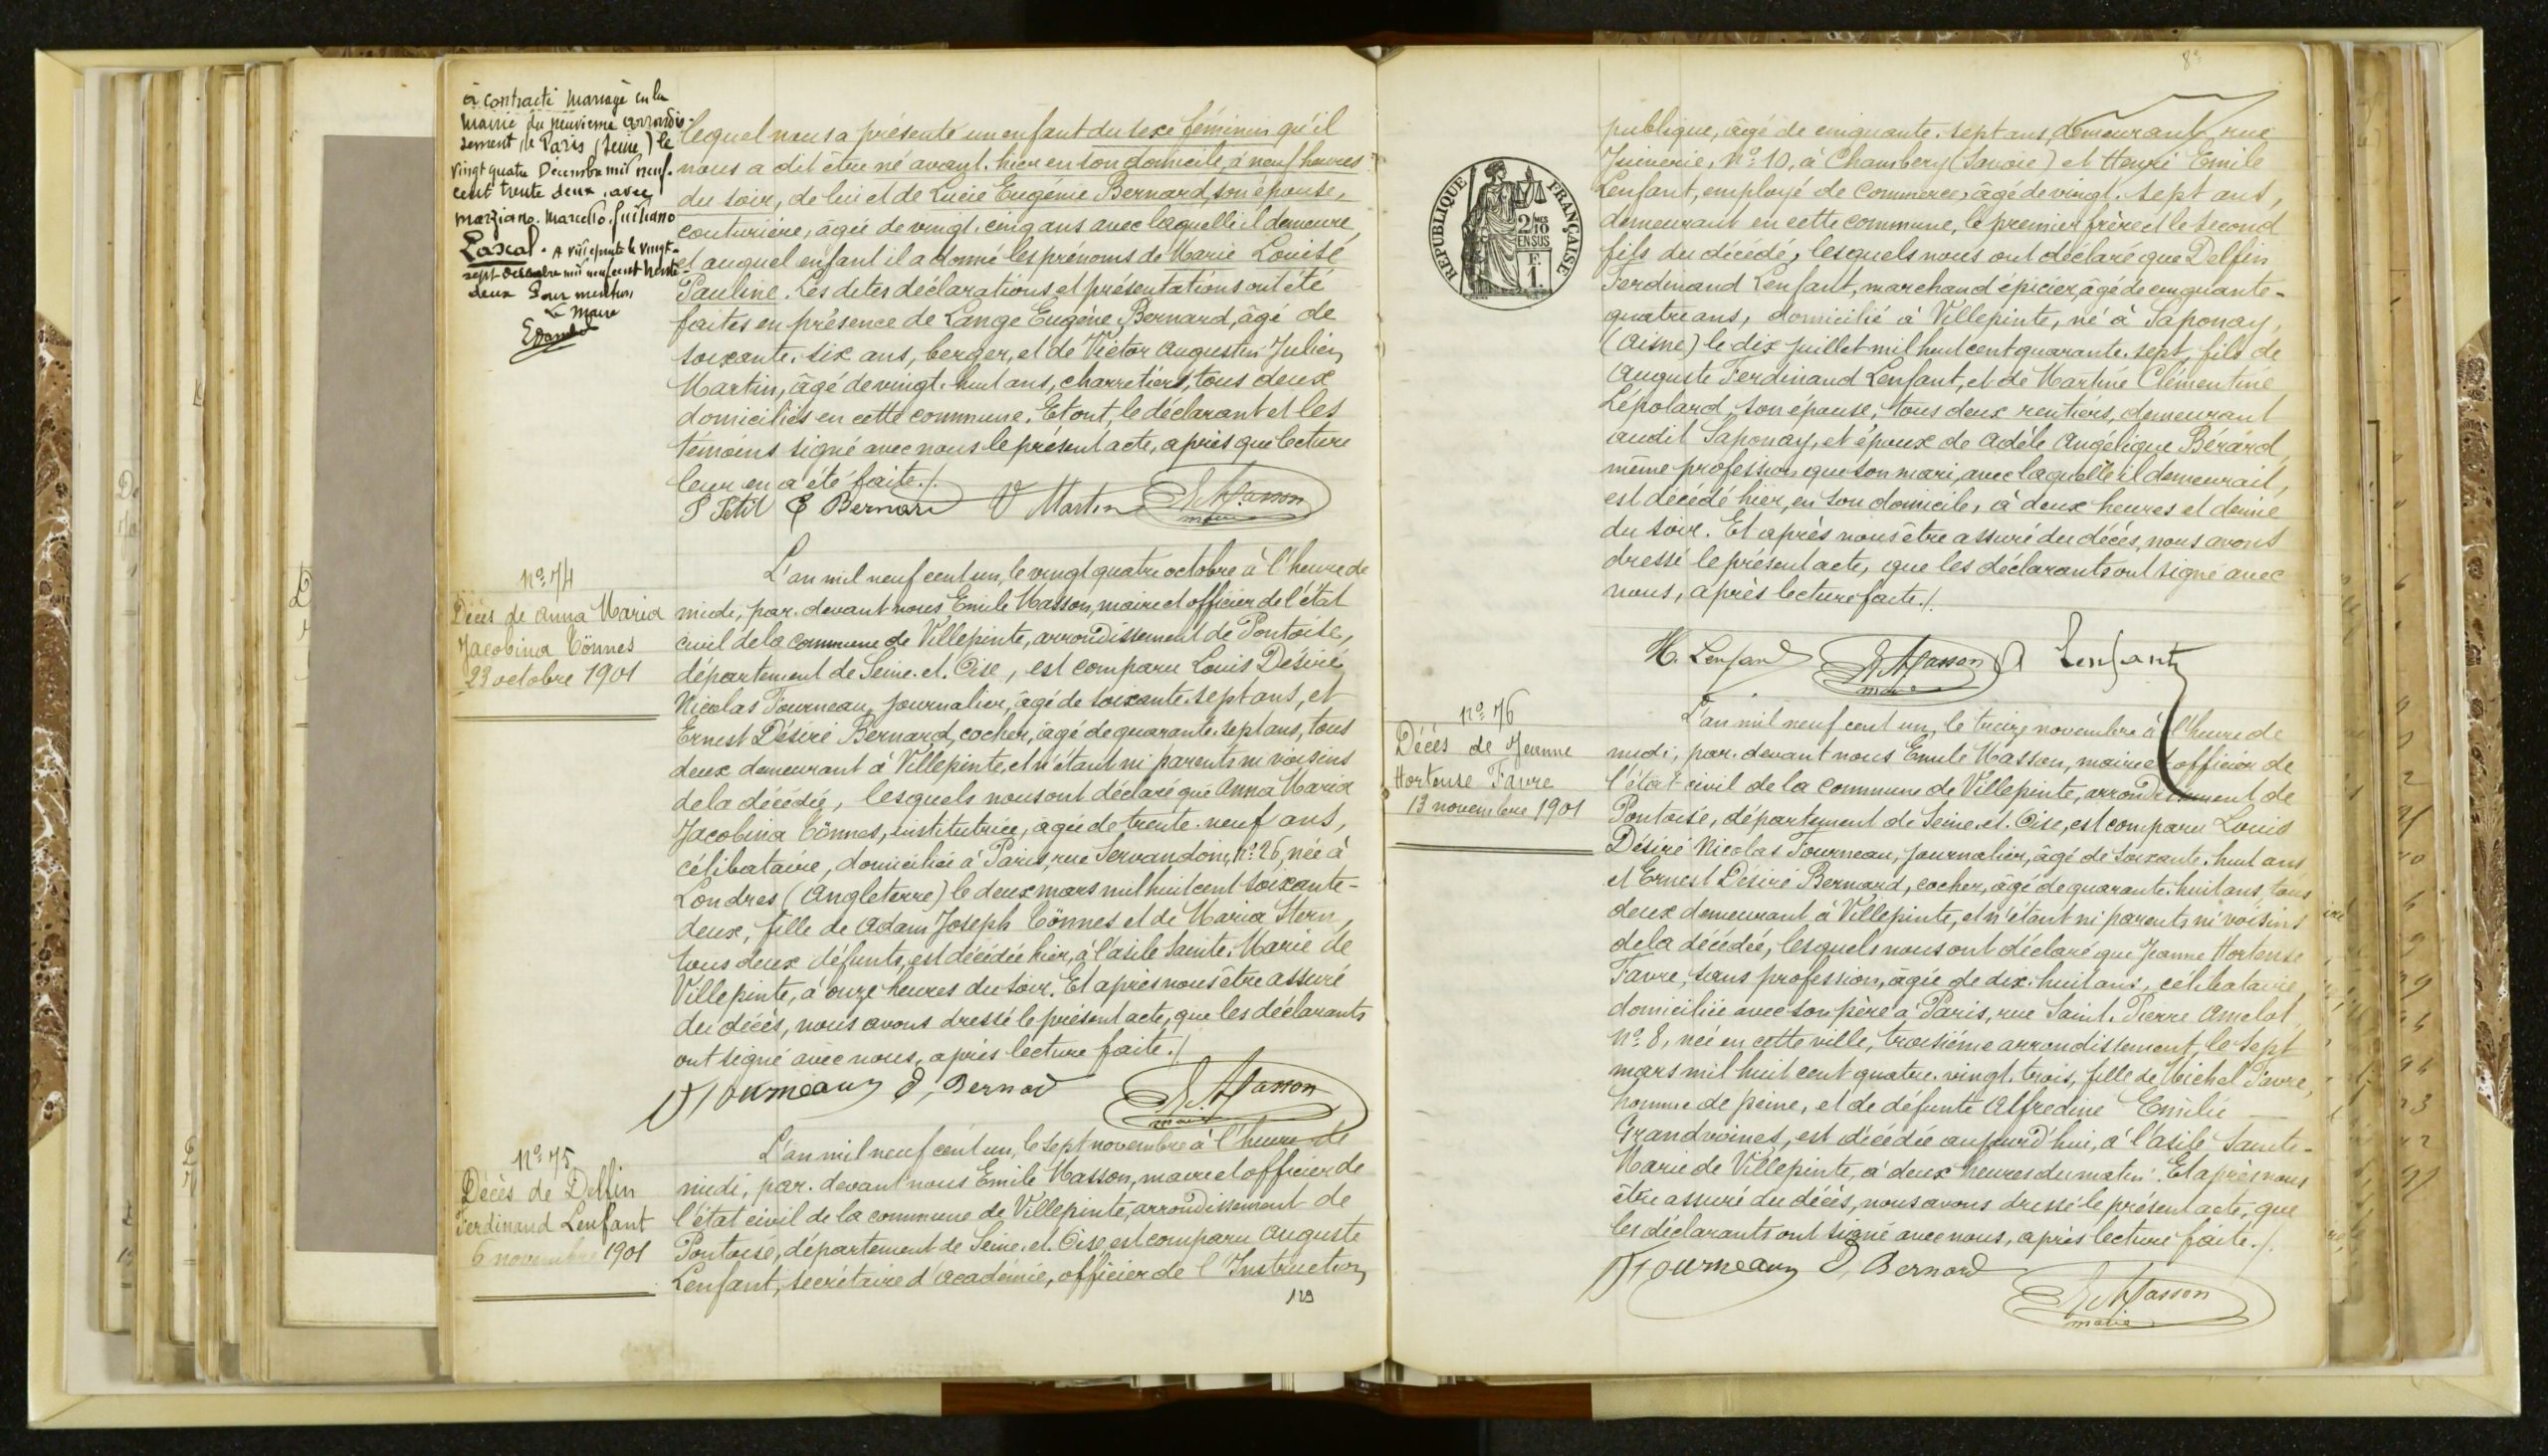 a contracté mariage en la
mairie du neuvième arrondis-
sement de Paris (Seine) le
vingt quatre Décembre mil neuf-
cent trente deux, avec
Marziano. Marcello. Giuliano
Lascal. A Villepinte le vingt-
sept décembre mil neuf cent trente-
deux Pour mention
Le Maire
lequel nous a présenté un enfant du sexe féminin qu'il
nous a dit être né avant-hier en son domicile, à neuf heures
du soir, de lui et de Lucie Eugénie Bernard, son épouse,
couturière, âgée de vingt-cinq ans avec laquelle il demeure,
et auquel enfant il a donné les prénoms de Marie Louise
Pauline. Les dites déclarations et présentations ont été
faites en présence de Lange Eugène Bernard, âgé de
soixante-six ans, berger, et de Victor Augustin Julien
Martin, âgé de vingt-huit ans, charretiers, tous deux
domiciliés en cette commune. Et ont, le déclarant et les
témoins signé avec nous le présent acte, après que lecture
leur en a été faite./.
P Petit E Bernard V Martin E. Masson
maire
No 74
Décès de Anna Maria
Jacobina Tönnes
23 octobre 1901
L'an mil neuf cent un, le vingt quatre octobre à l'heure de
midi, par-devant nous Emile Masson, maire et officier de l'état
civil de la commune de Villepinte, arrondissement de Pontoise,
département de Seine-et-Oise, est comparu Louis Désiré
Nicolas Fourneau, journalier, âgé de soixante-sept ans, et
Ernest Désiré Bernard, cocher, âgé de quarante-sept ans, tous
deux demeurant à Villepinte, et n'étant ni parents ni voisins
de la décédée, lesquels nous ont déclaré que Anna Maria
Jacobina Tönnes, institutrice, âgée de trente-neuf ans,
célibataire, domiciliée à Paris, rue Servandoni, No 26, née à
Londres (Angleterre) le deux mars mil huit cent soixante-
deux, fille de Adam Joseph Tönnes et de Maria Stern,
tous deux défunts, est décédée hier, à l'asile Sainte-Marie de
Villepinte, à onze heures du soir. Et après nous être assuré
du décès, nous avons dressé le présent acte, que les déclarants
ont signé avec nous, après lecture faite./.
Fourneaux E, Bernard E. Masson
maire
No 75
Décès de Delfin
Ferdinand Lenfant
6 novembre 1901
L'an mil neuf cent un, le sept novembre à l'heure de
midi, par-devant nous Emile Masson, maire et officier de
l'état civil de la commune de Villepinte, arrondissement de
Pontoise, département de Seine-et-Oise, est comparu Auguste
Lenfant, secrétaire d'académie, officier de l'Instruction
129
RÉPUBLIQUE FRANÇAISE
2/10 MES
EN SUS
F.
1
publique, âgé de cinquante-sept ans, demeurant rue
Juiverie, No 10, à Chambéry (Savoie) et Henri Emile
Lenfant, employé de commerce, âgé de vingt-sept ans,
demeurant en cette commune, le premier frère et le second
fils du décédé, lesquels nous ont déclaré que Delfin
Ferdinand Lenfant, marchand épicier, âgé de cinquante-
quatre ans, domicilié à Villepinte, né à Saponay,
(Aisne) le dix juillet mil huit cent quarante-sept, fils de
Auguste Ferdinand Lenfant, et de Martine Clémentine
Lépolard, son épouse, tous deux rentiers, demeurant
audit Saponay, et époux de Adèle Angélique Bérard,
même profession que son mari, avec laquelle il demeurait,
est décédé hier, en son domicile, à deux heures et demie
du soir. Et après nous être assuré du décès, nous avons
dressé le présent acte, que les déclarants ont signé avec
nous, après lecture faite./.
H. Lenfant E. Masson A Lenfant
maire
No 76
Décès de Jeanne
Hortense Favre
13 novembre 1901
L'an mil neuf cent un, le treize novembre à l'heure de
midi, par-devant nous Emile Masson, maire et officier de
l'état civil de la commune de Villepinte, arrondissement de
Pontoise, département de Seine-et-Oise, est comparu Louis
Désiré Nicolas Fourneau, journalier, âgé de soixante-huit ans
et Ernest Désiré Bernard, cocher, âgé de quarante-huit ans, tous
deux demeurant à Villepinte, et n'étant ni parents ni voisins
de la décédée, lesquels nous ont déclaré que Jeanne Hortense
Favre, sans profession, âgée de dix-huit ans, célibataire,
domiciliée avec son père à Paris, rue Saint-Pierre Amelot
No 8, née en cette ville, troisième arrondissement, le sept
mars mil huit cent quatre-vingt-trois, fille de Michel Favre,
homme de peine, et de défunte Alfredine Emélie
Grandvoines, est décédée aujourd'hui, à l'asile Sainte-
Marie de Villepinte, à deux heures du matin. Et après nous
être assuré du décès, nous avons dressé le présent acte, que
les déclarants ont signé avec nous, après lecture faite./.
Fourneaux E, Bernard
E. Masson
maire